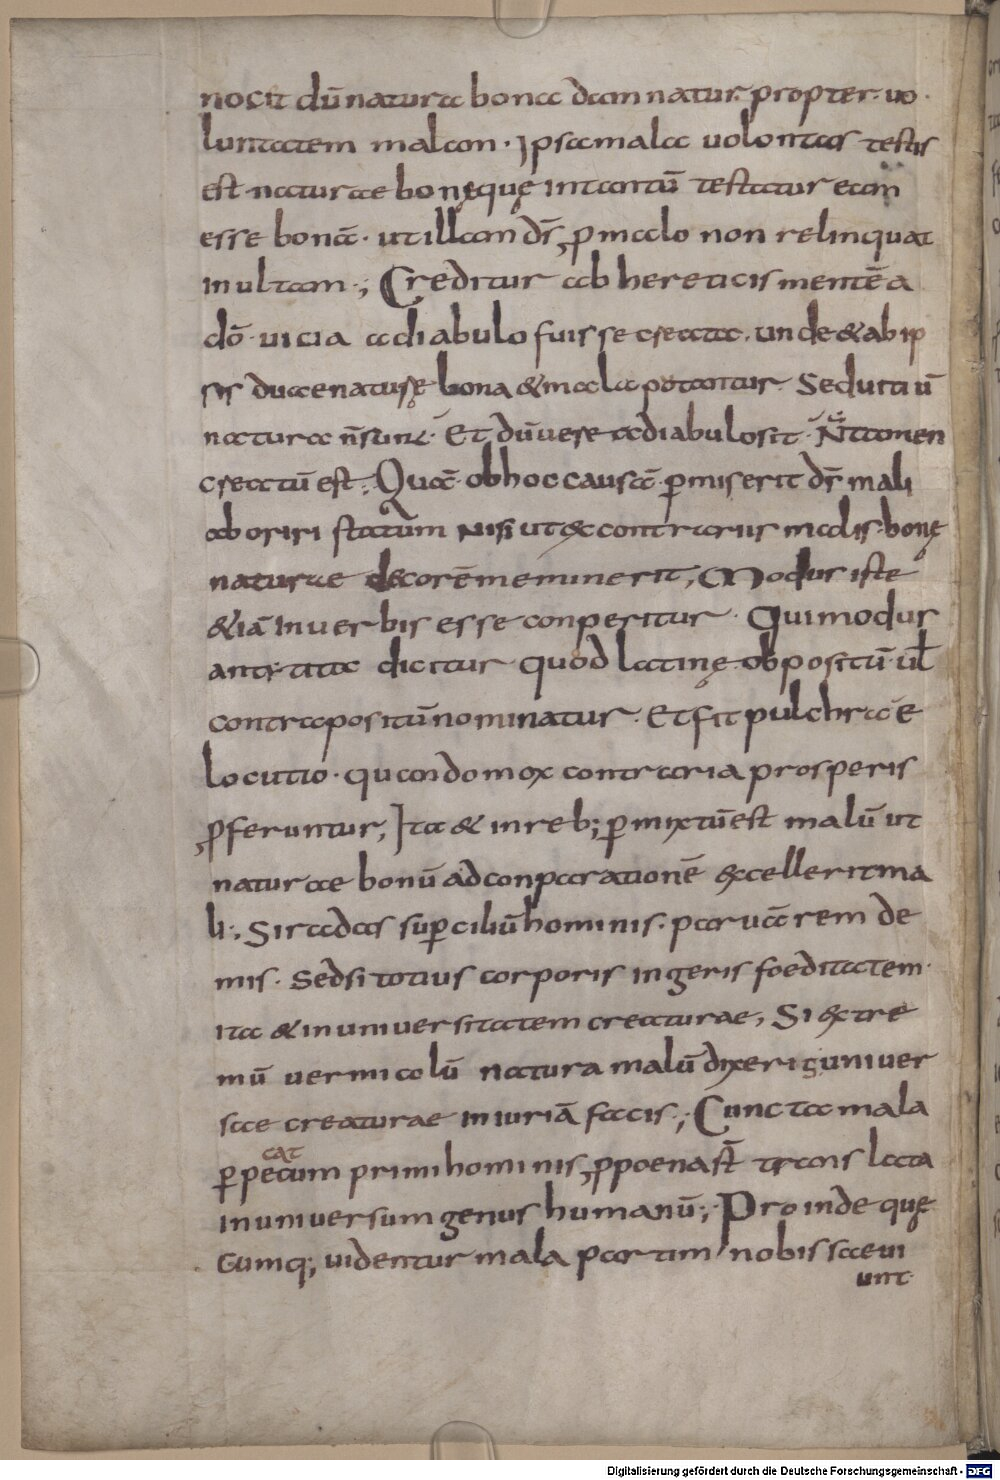 nocit dū natura bona damnatur propter uo
luntatem malam· Ipsa mala uoluntas testis
est naturae bonę quę intantū testatur eam
esse bonā· ut illam ds̄ pro malo non relinquat
inultam·; Creditur ab hereticis mentē a
dō· uicia a diabulo fuisse creata· unde & ab ip
sis duae naturę bona & mala putantur· Sed uitiū
natura n̄ sunt· Et dū uere a diabulo sit· N̄ tamen
creatū est· Quā ob hoc causā permiserit ds̄ mali
ab oriri statum nisi ut ex contrariis malis bonę
naturae decorē meminerit; Modus iste
&iā in uerbis esse conperitur· Qui modus
antitata dicitur quod latinę obpositū ul̄
contrapositū nominatur· Et fit pulchra e
locutio· quando mox contraria prosperis
proferuntur; Ita & in reb; permixtū est malū ut
naturae bonū ad conparationē excellerit ma
li·; Si radas supercilium hominis· paruā rem de
mis· Sed si totius corporis ingeris foeditatem·
ita & in uniuersitatem creaturae; Si extre
mū uermicolū natura malū dixeris uniuer
sae creaturae iniuriā facis·; Cuncta mala
per pec<sup>cat</sup>um primi hominis pro poena st̄ translata
in uniuersum genus humanū·; Proinde quę
cumq; uidentur mala partim nobis saeui
unt·
Digitalisierung gefördert durch die Deutsche Forschungsgemeinschaft - DFG